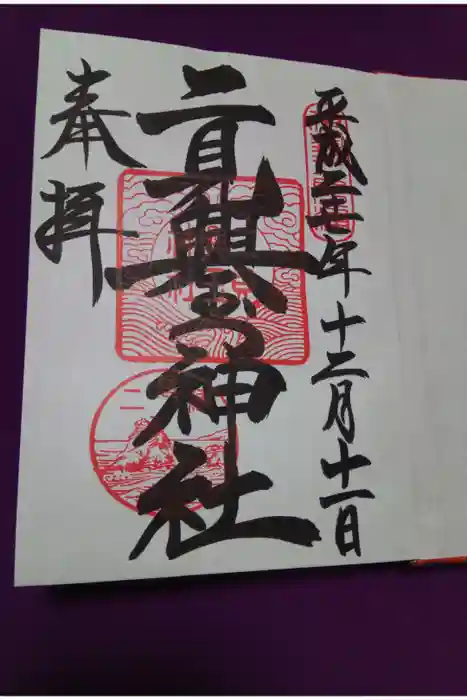 平成二十七年十二月十一日
二見興玉神社
奉拝